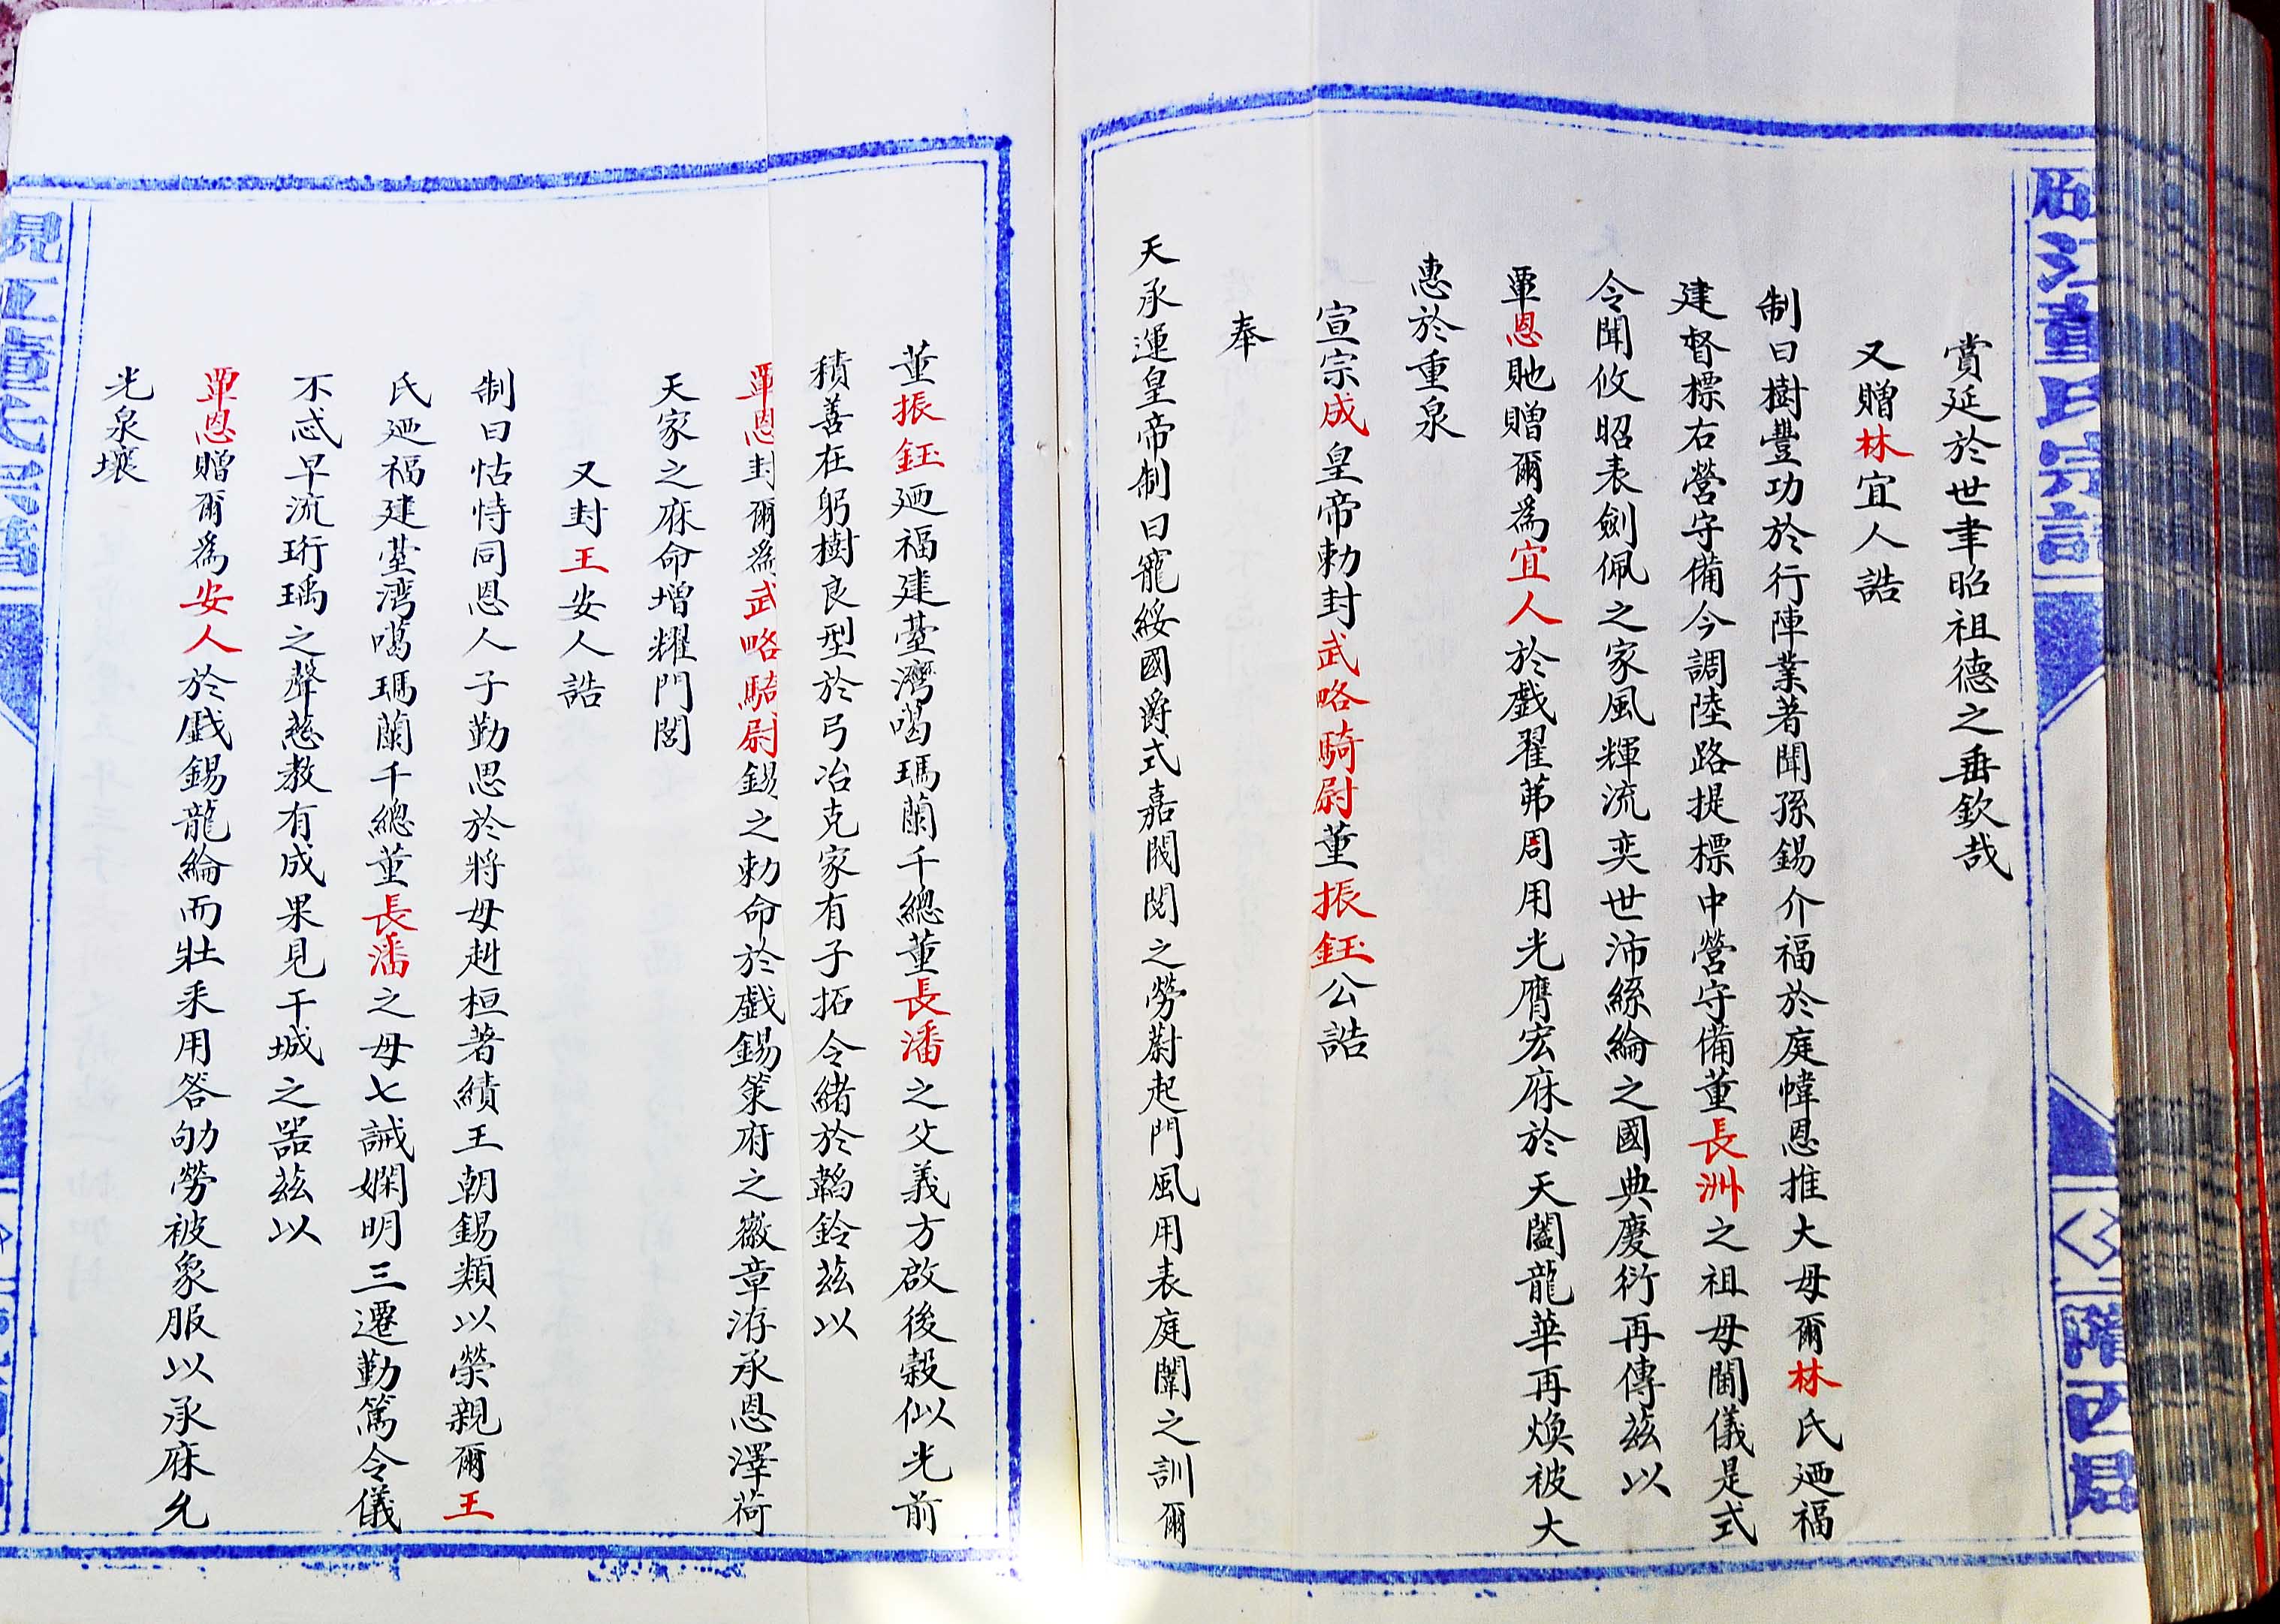 賞延於世聿昭祖德之垂欽哉
又贈林宜人誥
制曰樹豐功於行陣業著聞孫錫介福於庭幃恩推大母爾林氏廼福
建督標右營守備今調陸路提標中營守備董長洲之祖母閫儀是式
令聞攸昭表劍佩之家風輝流奕世沛絲綸之國典慶衍再傳茲以
覃恩貤贈爾為宜人於戲翟茀周用光膺宏庥於天闔龍華再煥被大
惠於重泉
宣宗成皇帝勅封武略騎尉董振鈺公誥
奉
天承運皇帝制曰寵綏國爵式嘉閥閱之勞蔚起門風用表庭闈之訓爾
董振鈺廼福建臺灣噶瑪蘭千總董長潘之父義方啟後穀似光前
積善在躬樹良型於弓冶克家有子拓令緒於韜鈐茲以
覃恩封爾為武略騎尉錫之勅命於戲錫策府之徽章洊承恩澤荷
天家之庥命增耀門閭
又封王安人誥
制曰怙恃同恩人子勤思於將母赳桓著績王朝錫類以榮親爾王
氏廼福建臺灣噶瑪蘭千總董長潘之母七誡嫻明三遷勤篤令儀
不忒早流珩瑀之聲慈教有成果見干城之器茲以
覃恩贈爾為安人於戲錫龍綸而壯釆用答劬勞被象服以承庥允
光泉壤